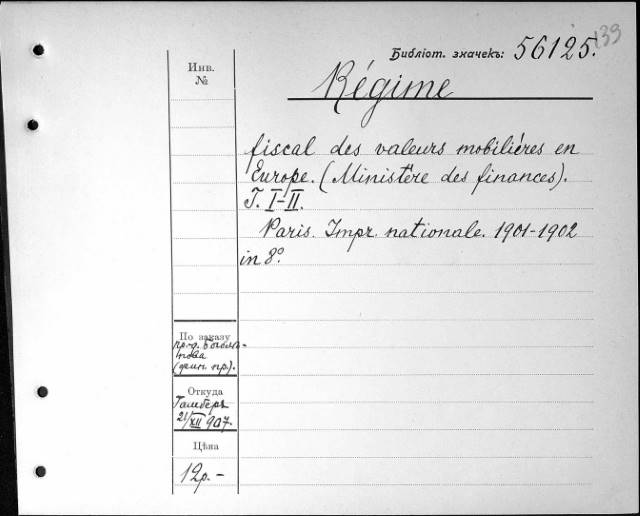 Библіот. значекъ: 56125.
139
Инв.
№
Régime
fiscal des valeurs mobiliéres en
Europe. (Ministère des finances).
T. I-II.
Paris. Impr. nationale. 1901-1902
in 8º.
По заказу
пр-д. Боголѣ-
пова
(фин. пр).
Откуда
Гамберъ
21/XII 907.
Цѣна
12р.-